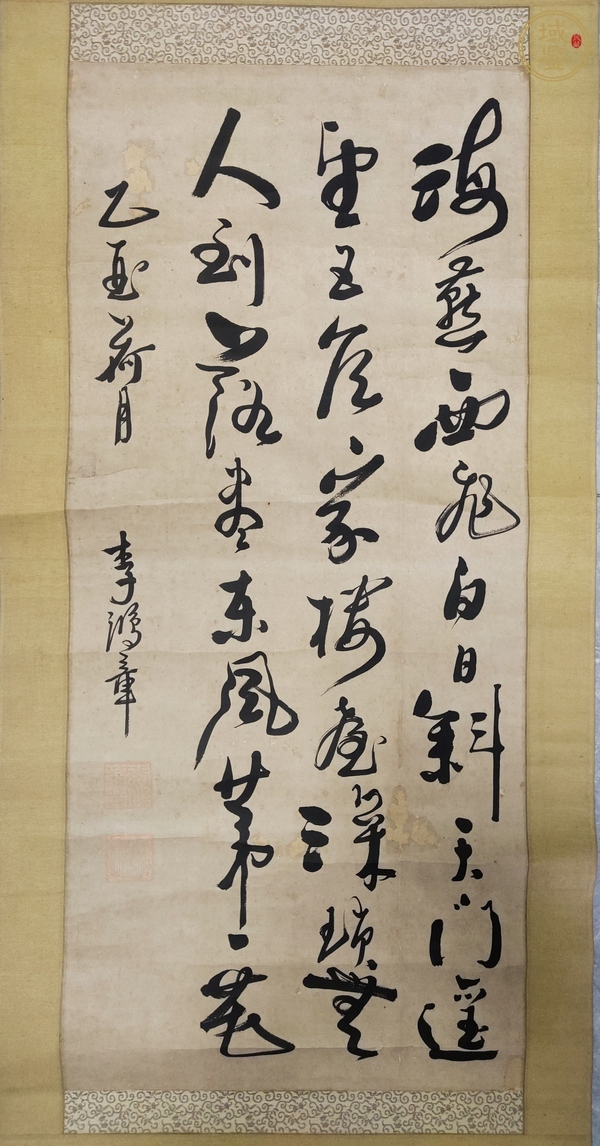 海燕西飛白日斜天門遥
望五侯家樓臺深鎖無
人到落盡東風第一花
乙酉荷月 李鴻章